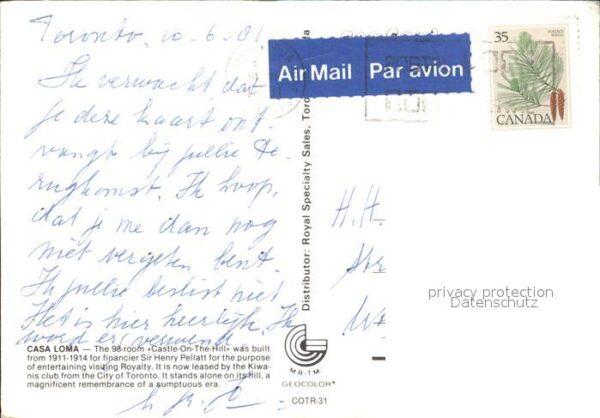 Toronto, 10-6-81
Ik verwacht dat
je deze kaart ont-
vangt bij jullie te-
rugkomst. Ik hoop,
dat je me dan nog
niet vergeten bent.
Ik jullie beslist niet
Het is hier heerlijk. Ik
word er verwend
Air Mail Par avion
35
POSTAGE
POSTES
CANADA
Distributor: Royal Specialty Sales, Toronto, Canada
H.H.
Str
privacy protection
Datenschutz
CASA LOMA — The 98-room «Castle-On-The-Hill» was built
from 1911-1914 for financier Sir Henry Pellatt for the purpose
of entertaining visiting Royalty. It is now leased by the Kiwa-
nis club from the City of Toronto. It stands alone on its hill, a
magnificent remembrance of a sumptuous era.
MR-TM
GEOCOLOR®
COTR-31